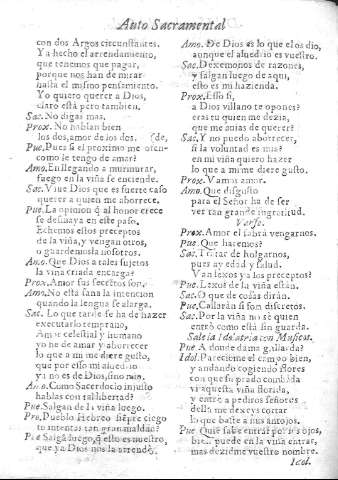 Auto Sacramental
con dos Argos circunstantes.
Ya hecho el arrendamiento,
que tenemos que pagar,
porque nos han de mirar
hasta el mismo pensamiento.
Yo quiero querer a Dios,
claro està pero tambien.
Sac. No digas mas.
Prox. No hablan bien
los dos, amor de los dos. (de,
Pue. Pues si el proximo me ofen-
como le tengo de amar?
Amo. En llegando a murmurar,
fuego en la viña se enciende.
Sac. Viue Dios que es fuerte caso
querer a quien me aborrece.
Pue. La opinion q̃ al honor crece
se desmaya en este paso,
Echemos estos preceptos
de la viña, y vengan otros,
o guardemosla nosotros.
Amo. Que Dios a tales sujetos
la viña criada encarga?
Prox. Amor sus secretos son.
Amo. No està sana la intencion
quando la lengua se alarga.
Sac. Lo que tarde se ha de hazer
executarlo temprano,
Amor celestial y humano
yo he de amar y aborrecer
lo que a mi me diere gusto,
que por esso mi aluedrio
ya no es de Dios, sino mio.
Amo. Como Sacerdocio injusto
hablas con tal libertad?
Pue. Salgan de la viña luego.
Pro. Pueblo Hebreo siẽpre ciego
tu intentas tan gran maldad?
Pue. Salgã luego, q̃ esto es nuestro,
que ya Dios nos la arrendò.
Amo. De Dios es lo que el os dio,
aunque el aluedrio es vuestro.
Sac. Dexemonos de razones,
y salgan luego de aqui,
esto es mi hazienda.
Prox. Essa si,
a Dios villano te opones?
eras tu quien me dezia,
que me auias de querer?
Sac. Y no puedo aborrecer,
si la voluntad es mia?
en mi viña quiero hazer
lo que a mi me diere gusto.
Prox. Vamos amor.
Amo. Que disgusto
para el Señor ha de ser
ver tan grande ingratitud.
Vanse.
Prox. Amor el sabrà vengarnos.
Pue. Que haremos?
Sac. Tratar de holgarnos,
pues ay edad y salud.
Van lexos ya los preceptos?
Pue. Lexos de la viña estàn.
Sac. O que de cosas diràn.
Pue. Callaràn si son discretos.
Sac. Por la viña no sè quien
entrò como està sin guarda.
Sale la Idolatria con Musicos.
Pue. A donde dama gallarda?
Idol. Pareciome el campo bien,
y andando cogiendo flores
con que su prado combida
vi aquesta viña florida,
y entrè a pediros señores
della me dexeys cortar
lo que baste a mis antojos.
Pue. Quiē sabe entrar por los ojos,
bien puede en la viña entrar,
mas dezidme vuestro nombre.
Idol.